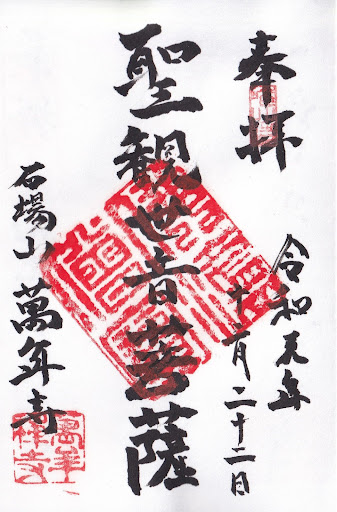 奉拝
令和元年
十二月二十二日
聖観世音菩薩
石場山
萬年寺